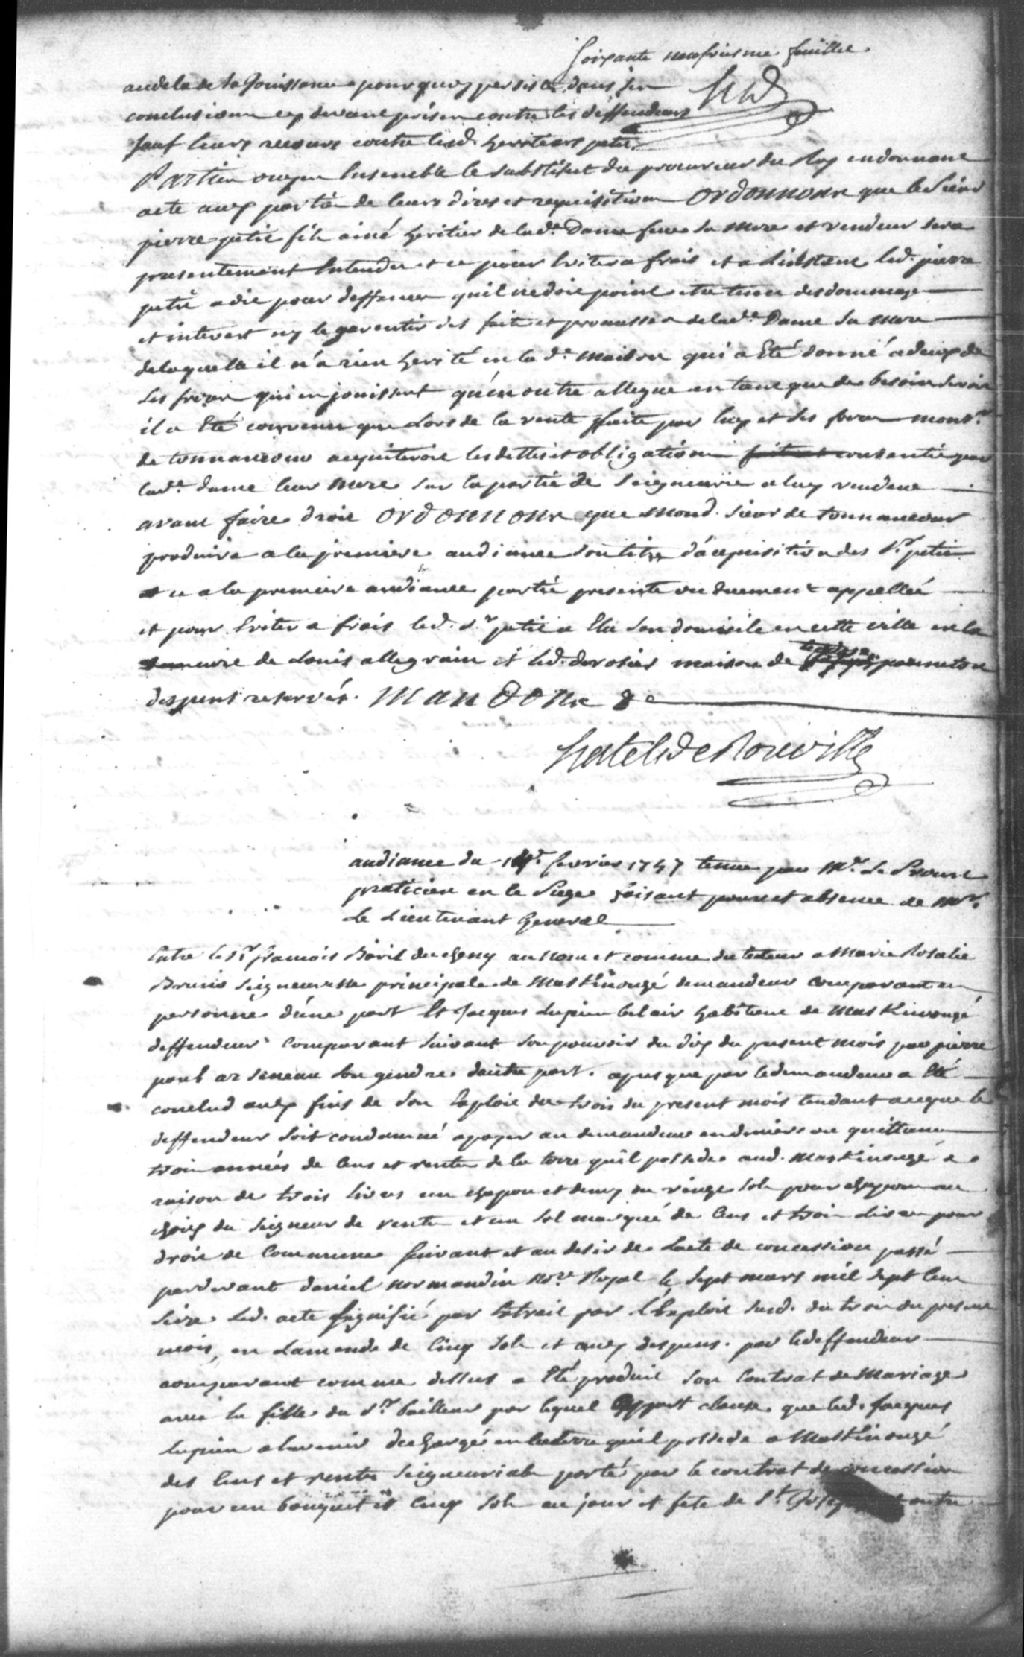 Soixante neufviesme feuillee
audela de sa Jouissance pourquoy persiste dans ses
conclusions cy devant prises contre les deffendeurs
sauf leurs recours contre lesd. heritiers petit
Parties ouyes Ensemble le substitut du procureur du Roy en donnant
acte aux parties de leurs dires et requisitions Ordonnons que le Sieur
pierre petit fils ainé heritier de lad.e Dame feue sa mere et vendeur sera
presentement Entendu et ce pour Eviter a frais et a Linstant led. pierre
petit a dit pour deffenses quil ne doit point etre tenu des dommages
et interest ny le garentir des faits et promesses de lad.e Dame sa mere
de laquelle il n'a rien herité en lad.e maison qui a Eté donné a deux de
ses freres qui en jouissent qu'en outre allegue en tant que de besoin seroit
il a Eté convenu que Lors de la vente faite par luy et ses freres mond. sr
de tonnancour acquiteroit les dettes et obligations consentie par
lad.e dame leur mere sur la partie de Seigneurie a luy vendue
avant faire droit Ordonnons que mond. Sieur de tonnancour
produira a la premiere audiance son titre d'acquisition des Sr petit
et ce a la premiere audiance partie presente ou duement appellée
et pour Eviter a frais led. Sr petit a Elu son domicile en cette ville en la
demeure de Louis allegrain et led. derosiers maison de
despens reservés. Mandons &c
hertel de Rouville
audiance du 14e fevrier 1747 tenue par Mr.
praticien en le Siege faisant pour et absence de Mr.
Le Lieutenant General
Entre le Sr francois Boril ducheny au nom et comme du tuteur a Marie Rosalie
Brunio Seigneuresse principale de Maskinongé demandeur comparant en
personne d'une part Et Jacques Lupien belair habitant de Maskinongé
deffendeur comparant suivant son pouvoir du dix du present mois par pierre
paul arseneau son gendre dautre part. apres que par le demandeur a Eté
conclud aux fins de son Exploit du trois du present mois tendant a ce que le
deffendeur soit condamné a payer au demandeur en deniers ou quittance
trois années de Cens et rentes de la terre quil possede aud. Maskinongé a
raison de trois livres un chapon et demy ou vingt sols pour chapon au
choix du Seigneur de rente et un sol marqué de Cens et trois Livres pour
droit de Commune suivant et au desir de Lacte de concession passé
pardevant daniel Normandin no.re Royal le sept mars mil sept Cent
seize led. acte signifié par Extrait par l'Exploit susd. du trois du present
mois, en Lamende de Cinq sols et aux despens. par le deffendeur
comparant comme dessus a Eté produit son Contrat de Mariage
avec la fille du Sr bailleur par lequel appert clause que led. Jacques
Lupien a lavenir dechargé en la terre quil possede a Maskinongé
des Cens et rentes Seigneuriale portés par le contrat de concession
pour un bouquet et Cinq sols au jour et fete de St Joseph et outre